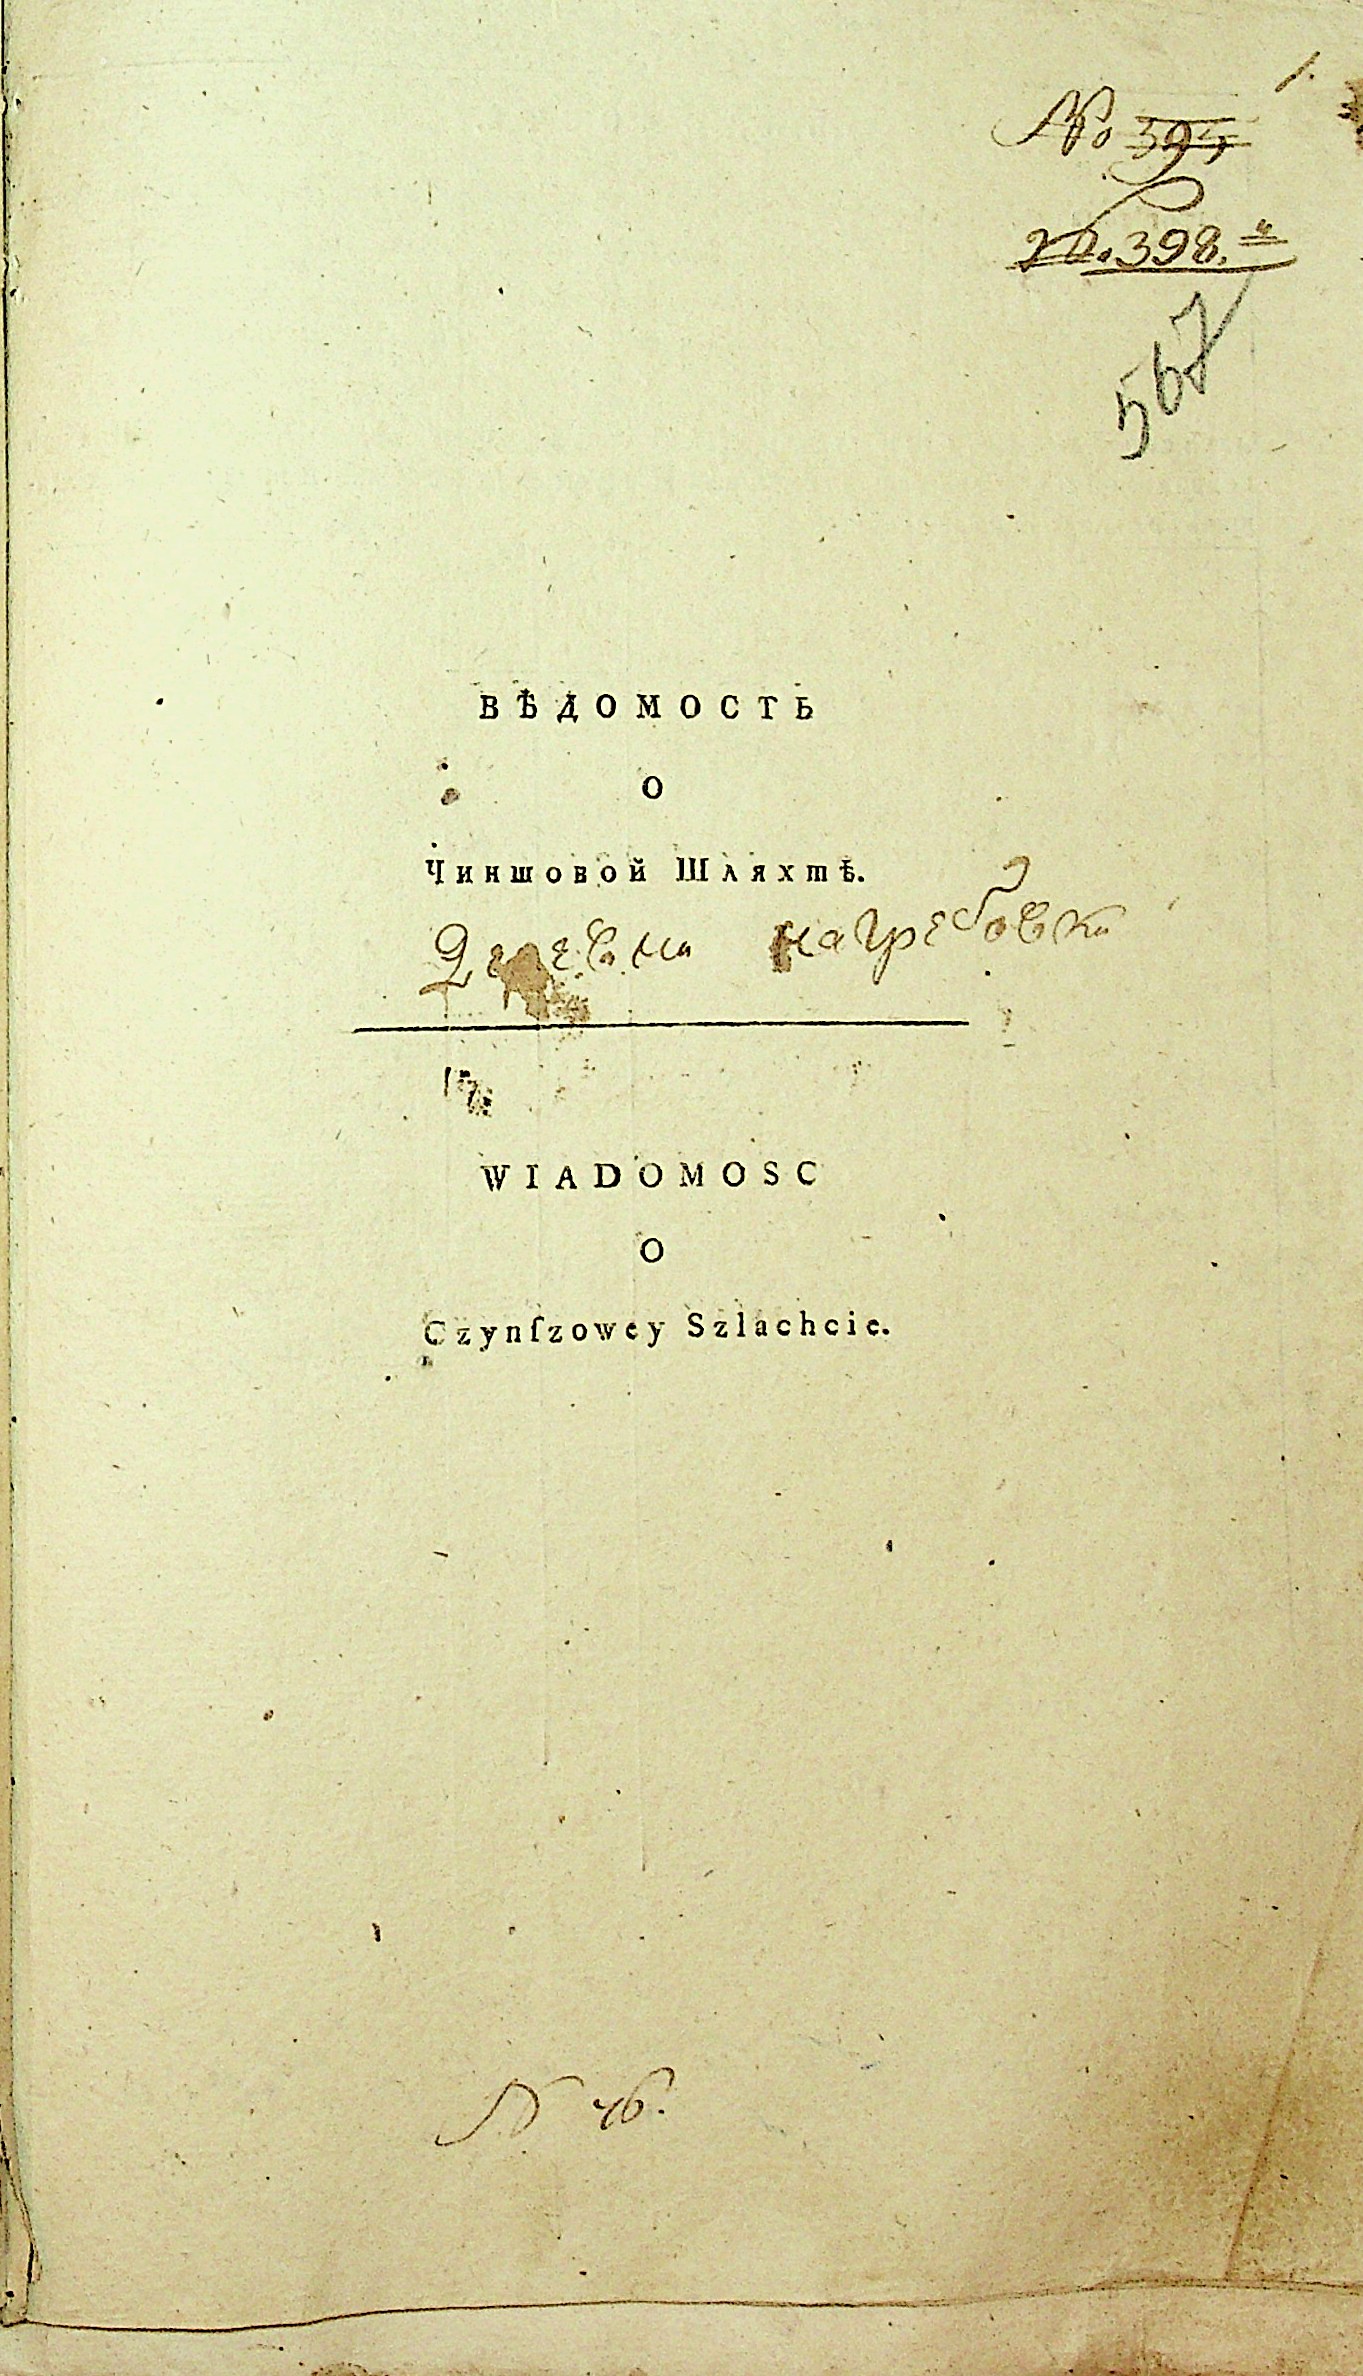 1.
№ 394
398.
567
ВѢДОМОСТЬ
О
Чиншовой Шляхтѣ.
Деревни Нагребовки
WIADOMOSC
O
Czynſzowey Szlachcie.
N 46.